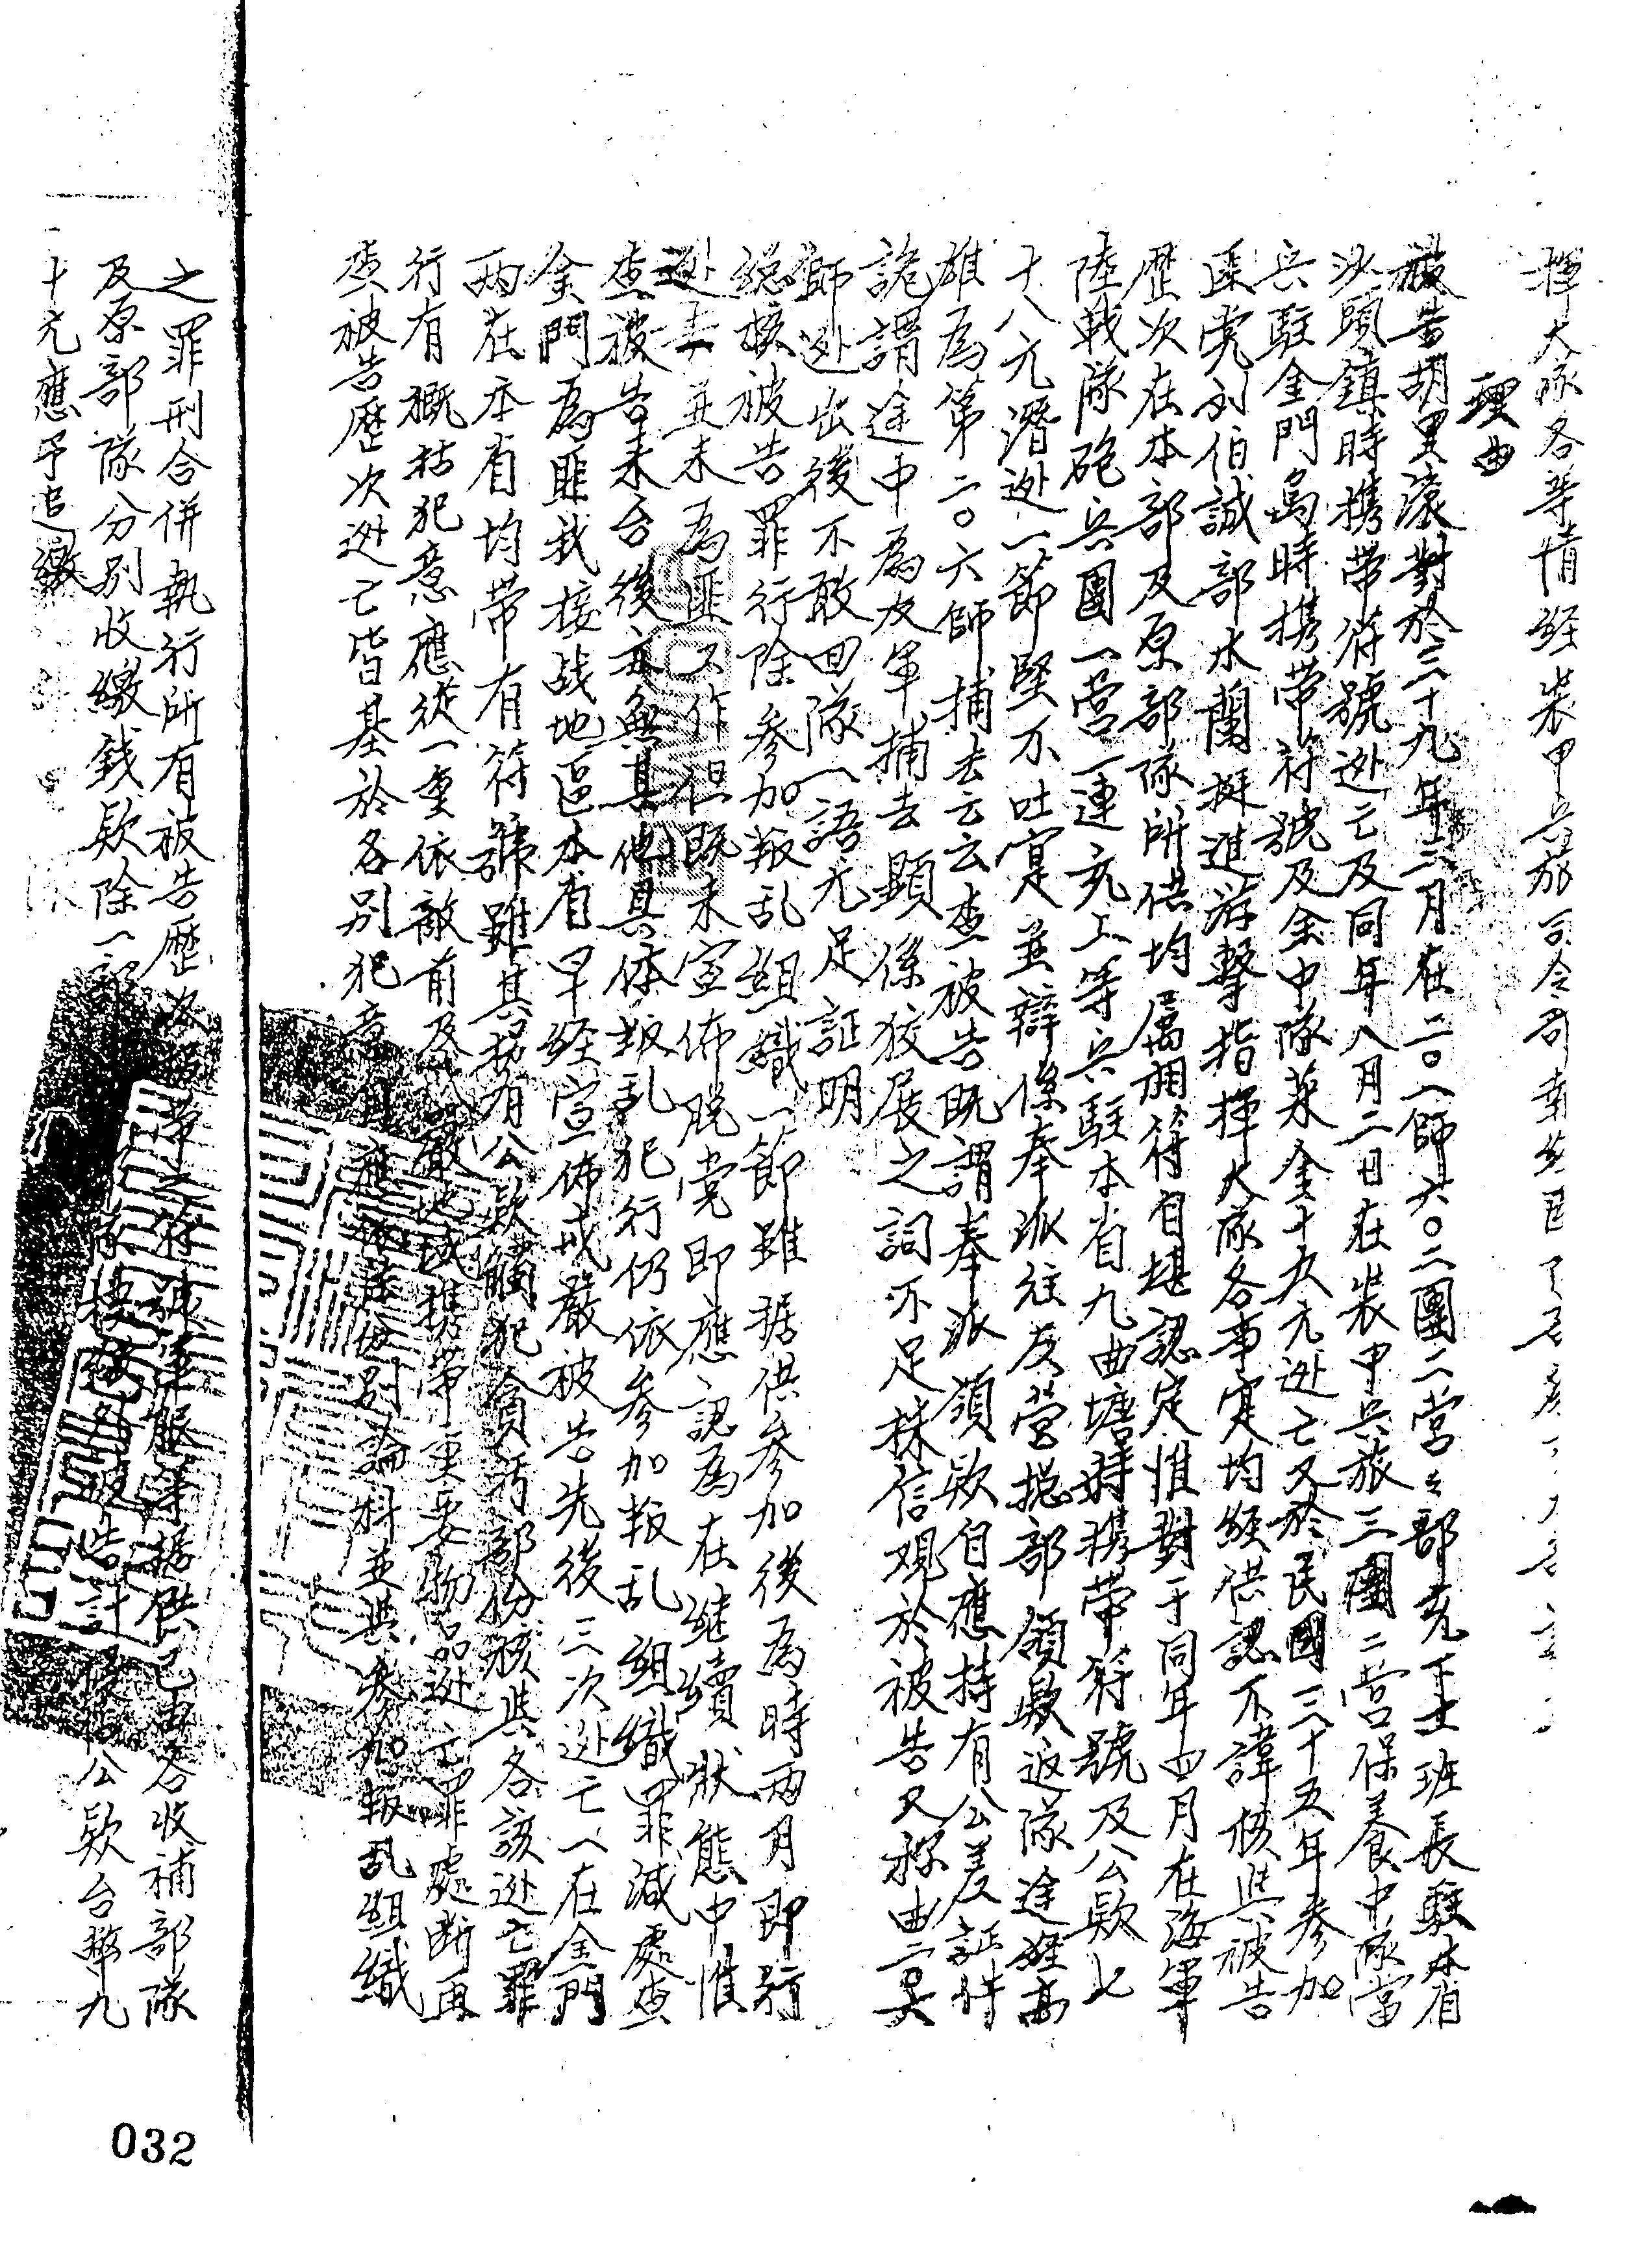 揮大隊各等情經裝甲兵旅司令部
理由
被告胡里濠對於三十九年三月在二〇一師六〇二團二營々部充下士班長駐本省
沙頭鎮時攜帶符號逃亡及同年八月二日在裝甲兵旅三團二營保養中隊當
兵駐金門島時携帶符號及金中隊菜金十九元逃亡又於民國三十五年參加
匪党刘伯誠部水蘭挺進游擊指揮大隊各事实均經供認不諱核與被告
歷次在本部及原部隊所供均屬相符自堪認定惟對于同年四月在海軍
陸戰隊砲兵團一營一連充上等兵駐本省九曲塘時携帶符號及公款七
十八元潛逃一節堅不吐實並辯係奉派往友營總部領款返隊途經高
雄為第二〇六師捕去云云查被告既謂奉派領欵自應持有公差証件
詭謂途中為友軍捕去顯係狡展之詞不足採信观於被告又称由二〇六
師逃出後不敢回隊一語尤足証明
総核被告罪行除參加叛乱組織一節雖据供參加後為時兩月即行
逃去並未為匪工作但既未宣佈脫党即應認為在継續狀態中惟
查被告來台後亦無其他具体叛乱犯行仍依參加叛乱組織罪減處查
金門為匪我接战地區本省早經宣佈戒嚴被告先後三次逃亡一在金門
兩在本省均帶有符號雖其拐有公欵觸犯貪污部份核與各該逃亡罪
行有概括犯意應從一重依敵前及戒嚴地域携帶重要物品逃亡罪處断再
查被告歷次逃亡皆基於各別犯意自應分別論科並與參加叛乱組織
之罪刑合併執行所有被告歷次拐帶之符號軍服等据供已由各收補部隊
及原部隊分别收繳錢欵除一部 公欵台幣九
十元應予追繳
032